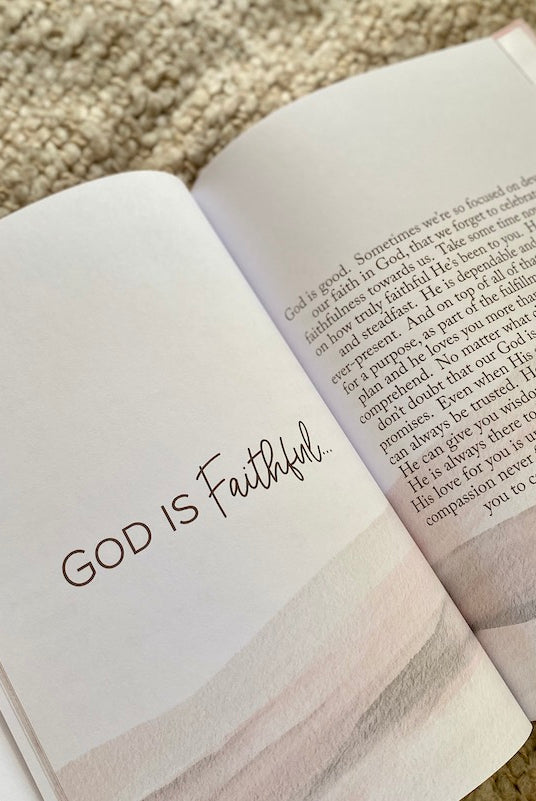 GOD IS Faithful...
God is good. Sometimes we're so focused on
our faith in God, that we forget to celebrat
faithfulness towards us. Take some time now
on how truly faithful He's been to you. H
and steadfast. He is dependable and
ever-present. And on top of all of that
for a purpose, as part of the fulfillm
plan and he loves you more tha
comprehend. No matter what
don't doubt that our God is
promises. Even when His
can always be trusted. H
He can give you wisdo
He is always there to
His love for you is u
compassion never
you to c